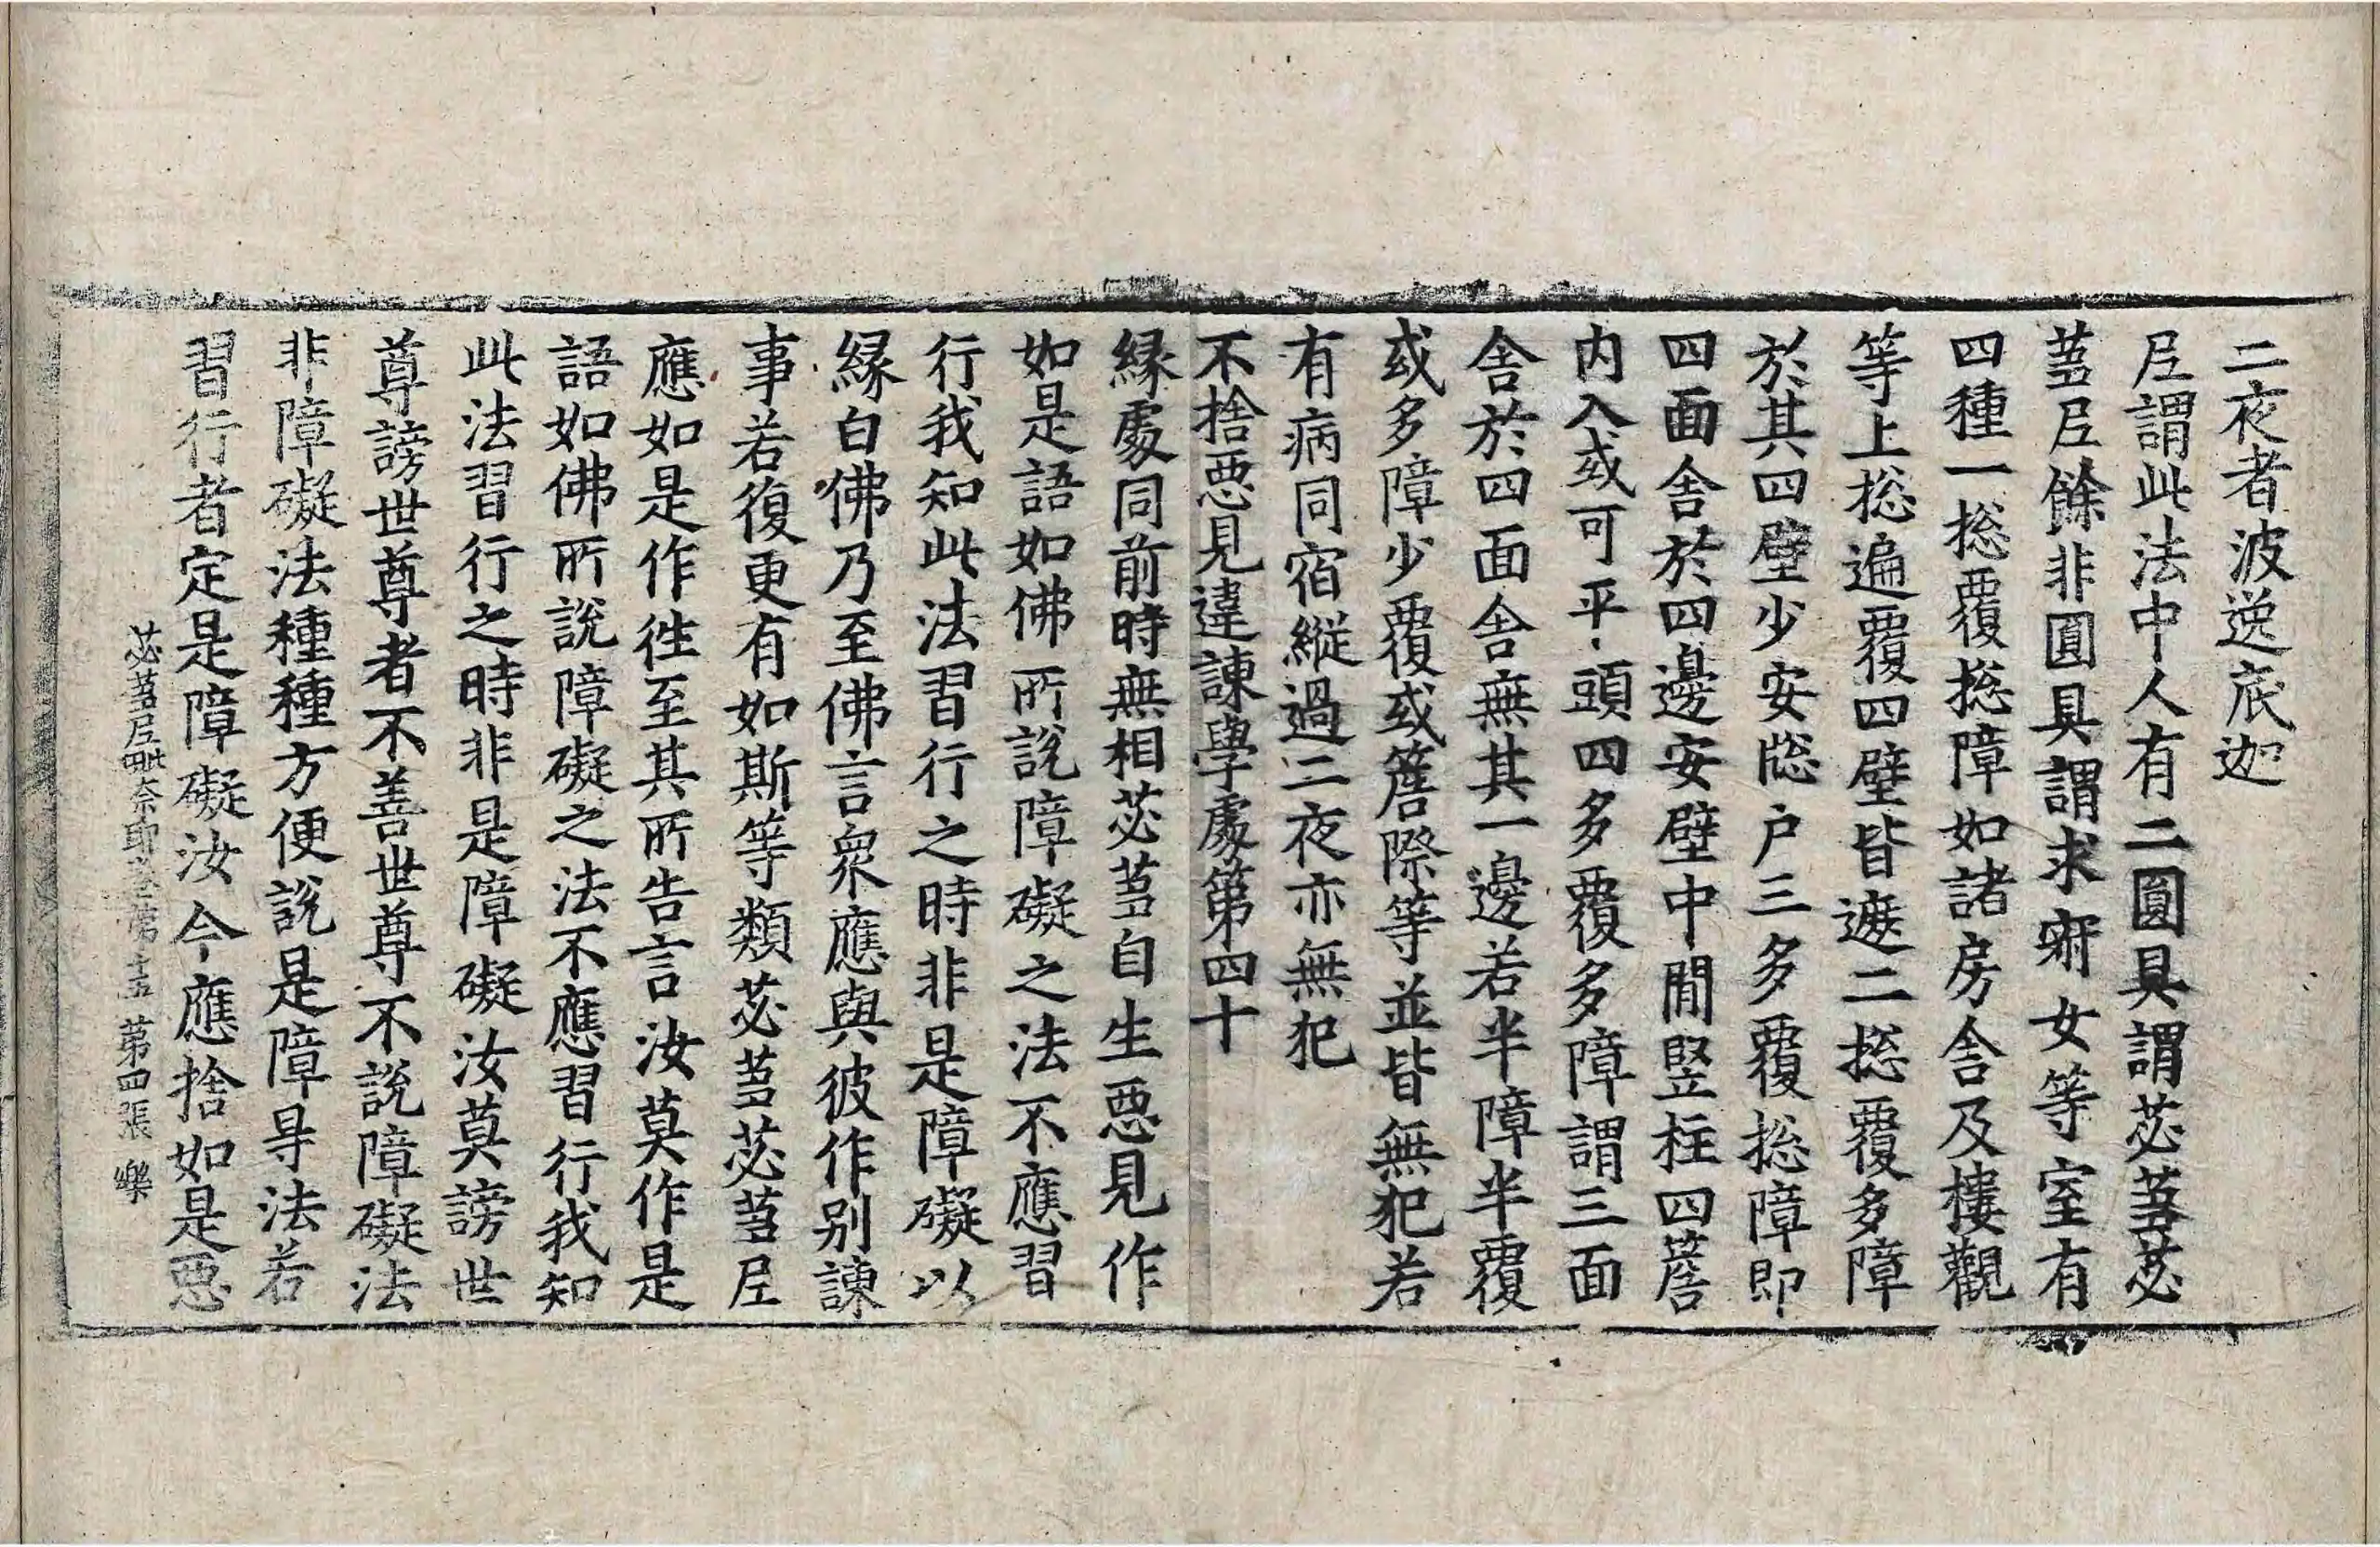 二夜者波逸底迦
尼謂此法中人有二圓具謂苾蒭苾
蒭尼餘非圓具謂求寂女等室有
四種一捴覆捴障如諸房舍及樓觀
等上捴遍覆四壁皆遮二捴覆多障
於其四壁少安牎户三多覆捴障即
四面舍於四邊安壁中閒竪柱四簷
内入或可平頭四多覆多障謂三面
舍於四面舍無其一邊若半障半覆
或多障少覆或簷際等並皆無犯若
有病同宿縱過二夜亦無犯
不捨惡見違諫學處第四十
緣處同前時無相苾蒭自生惡見作
如是語如佛所說障礙之法不應習
行我知此法習行之時非是障礙以
緣白佛乃至佛言衆應與彼作別諫
事若復更有如斯等類苾蒭苾蒭尼
應如是作徃至其所告言汝莫作是
語如佛所說障礙之法不應習行我知
此法習行之時非是障礙汝莫謗世
尊謗世尊者不善世尊不說障礙法
非障礙法種種方便說是障㝵法若
習行者定是障礙汝今應捨如是惡
苾蒭尼毗奈耶卷第十五 第四張 樂